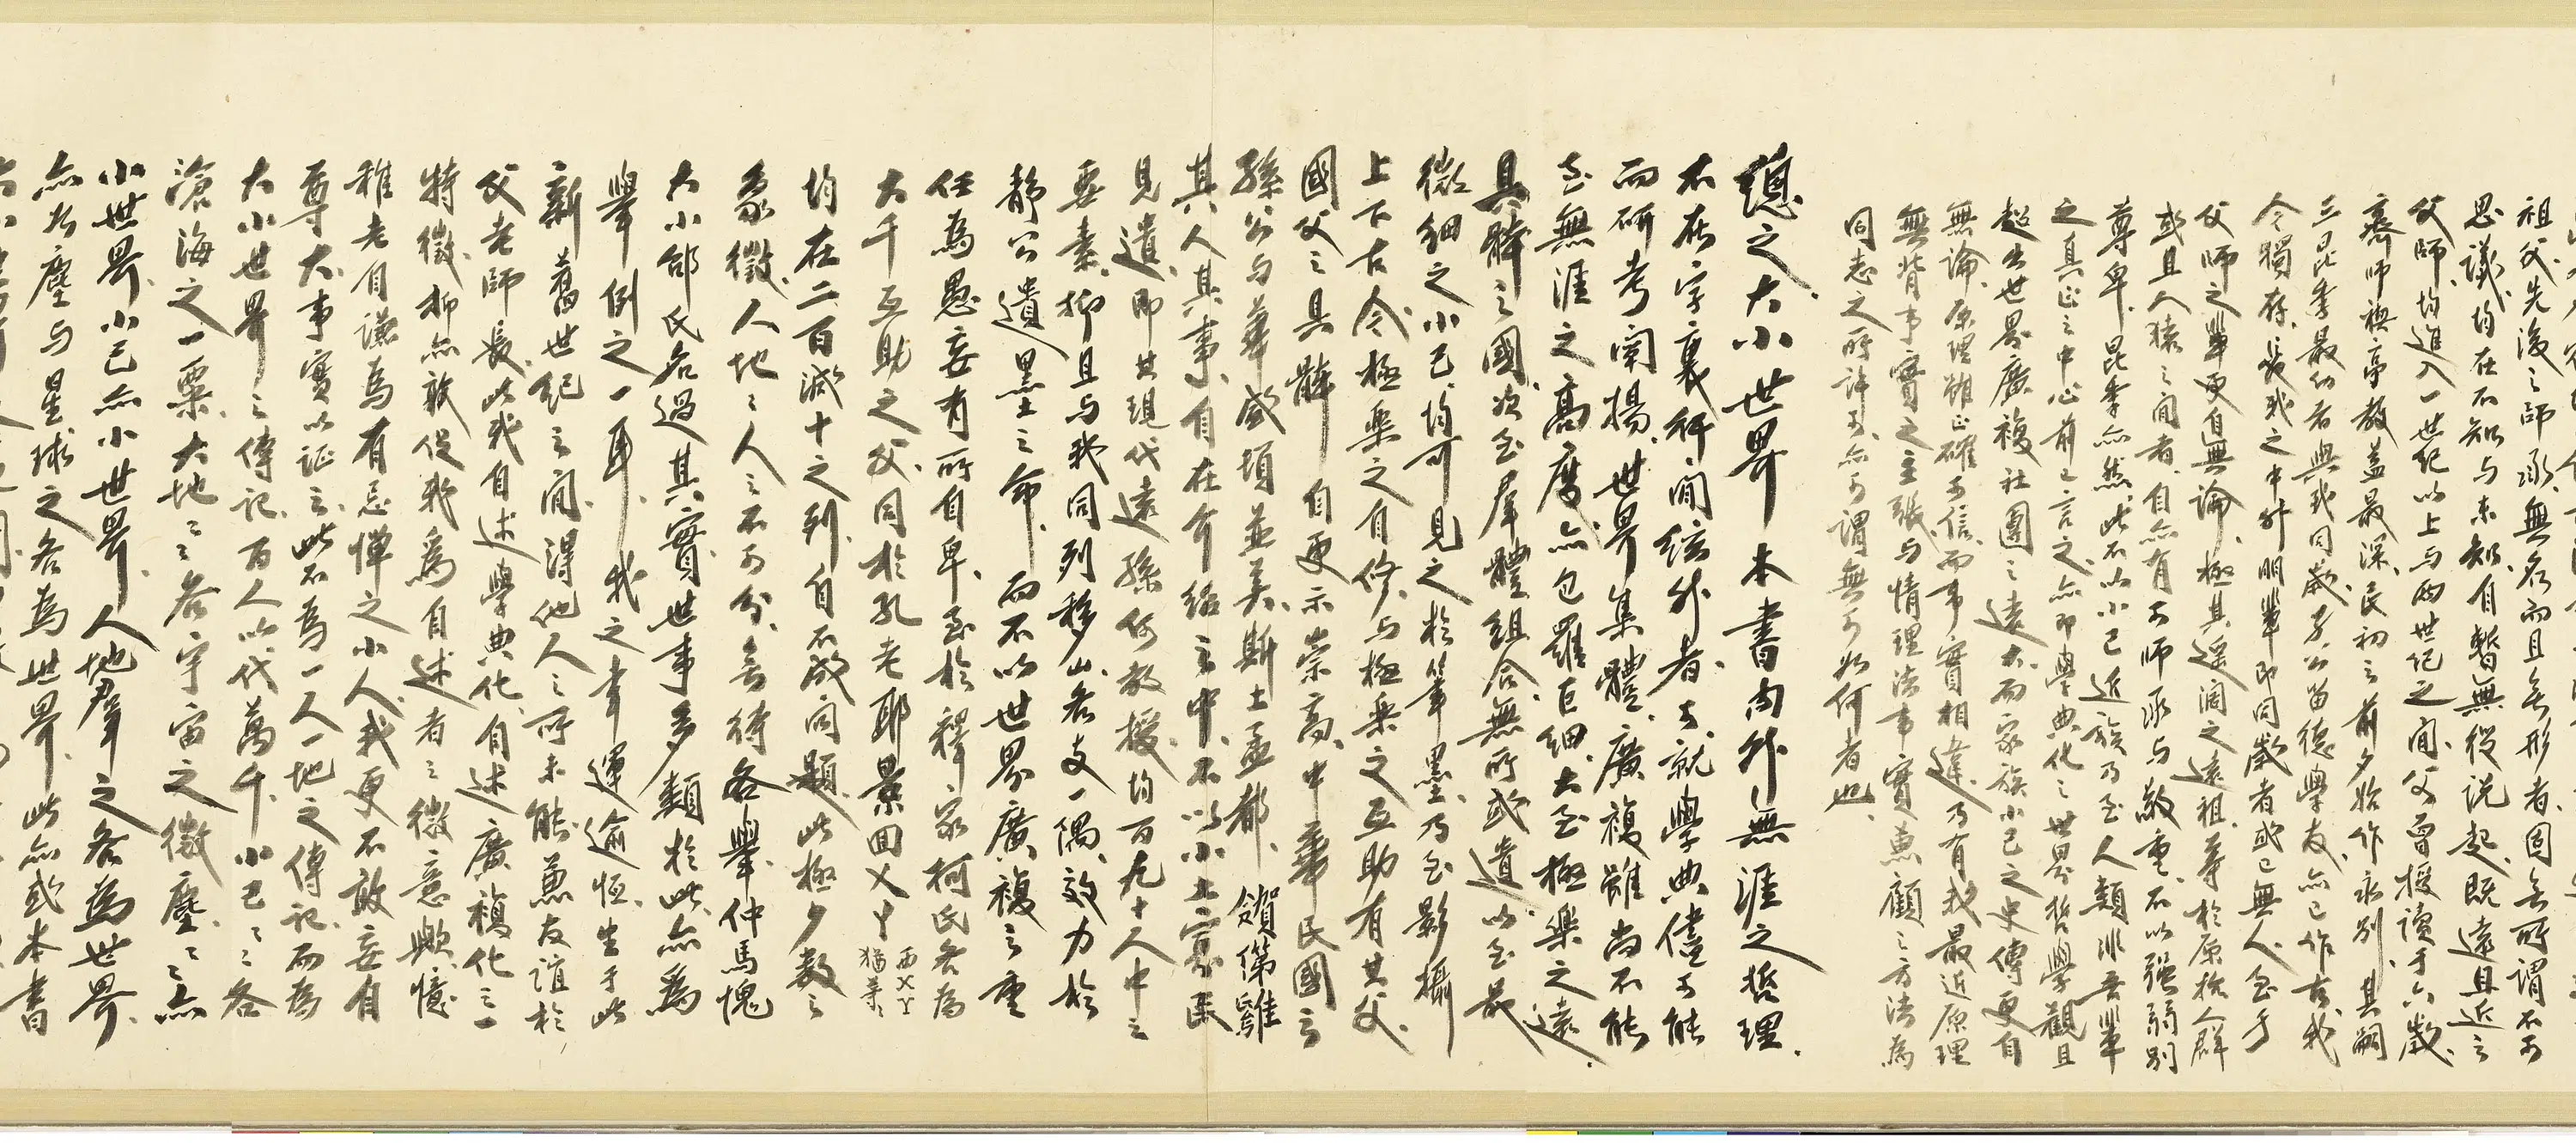 祖父先後之師承無名而且無形者固無所謂不可
思議均在不知与未知自暫無從説起既遠且近之
父師均進入一世紀以上与兩世記之間父曾授讀于六歲
蹇師袂亭教益最深民初之前夕始作永別其嗣
三昆季最幼者與我同歲子公笛德學友亦已作古我
今獨存長我之中外朋輩即同歲者或已無人至于
父師之輩更自無論極其遥闊之遠祖等於原始人群
或且人猿之間者自亦有可師承与敬重不以强弱別
尊卑昆季亦然此不以小己近族乃至人類非吾輩
之真正之中心前已言之亦即學典化之世界哲學觀且
超出世界廣複社團之遠大而家族小己之史傳更自
無論原理雖正確可信而事實相違乃有我最近原理
無背事實之主張与情理法事實兼顧之方法為
同志之所許可亦可謂無可如何者也
總之大小世界本書内外無涯之哲理
不在字裏行間絃外者可就學典儘可能
而研考闡揚世界集體廣複雖尚不能
至無涯之高度亦包羅巨細大至極樂之遠
具體之國次至羣體組合無所或遺以至最
微細之小己均可見之於筆墨乃至影攝
上下古今極樂之自修与極樂之互助有其父
國父之具體自更示崇高中華民國之
孫公与華盛頓並美斯土孟都
其人其事自在介紹之中不以小土寡民
見遺即其現代遠孫何教授均百九十人中之
要素抑且与我同列移山者支一隅效力於
靜公遺墨之命而不以世界廣複之重
任為愚妄有所自卑至於釋家柯氏者為
大千互助之父同於孔老耶景回
均在二百減十之列自不成問題此極少數之
象徵人地之人之不可分無待各舉仲馬愧
大小郤氏名過其實世事多類於此亦為
舉例之一耳我之幸運逾恒生于此
新舊世紀之間得他人之所未能兼友誼於
父老師長此我自述學典化自述廣複化之一
特徵抑亦敢促我為自述者之微意歟憶
稚老自謙為有忌憚之小人我更不敢妄自
尊大事實以証之此不為一人一地之傳記而為
大小世界之傳記百人以代萬千小己之各
滄海之一粟大地之各宇宙之微塵之亦
小世界小己亦小世界人地羣之各為世界
亦如塵与星球之各為世界此亦或本書